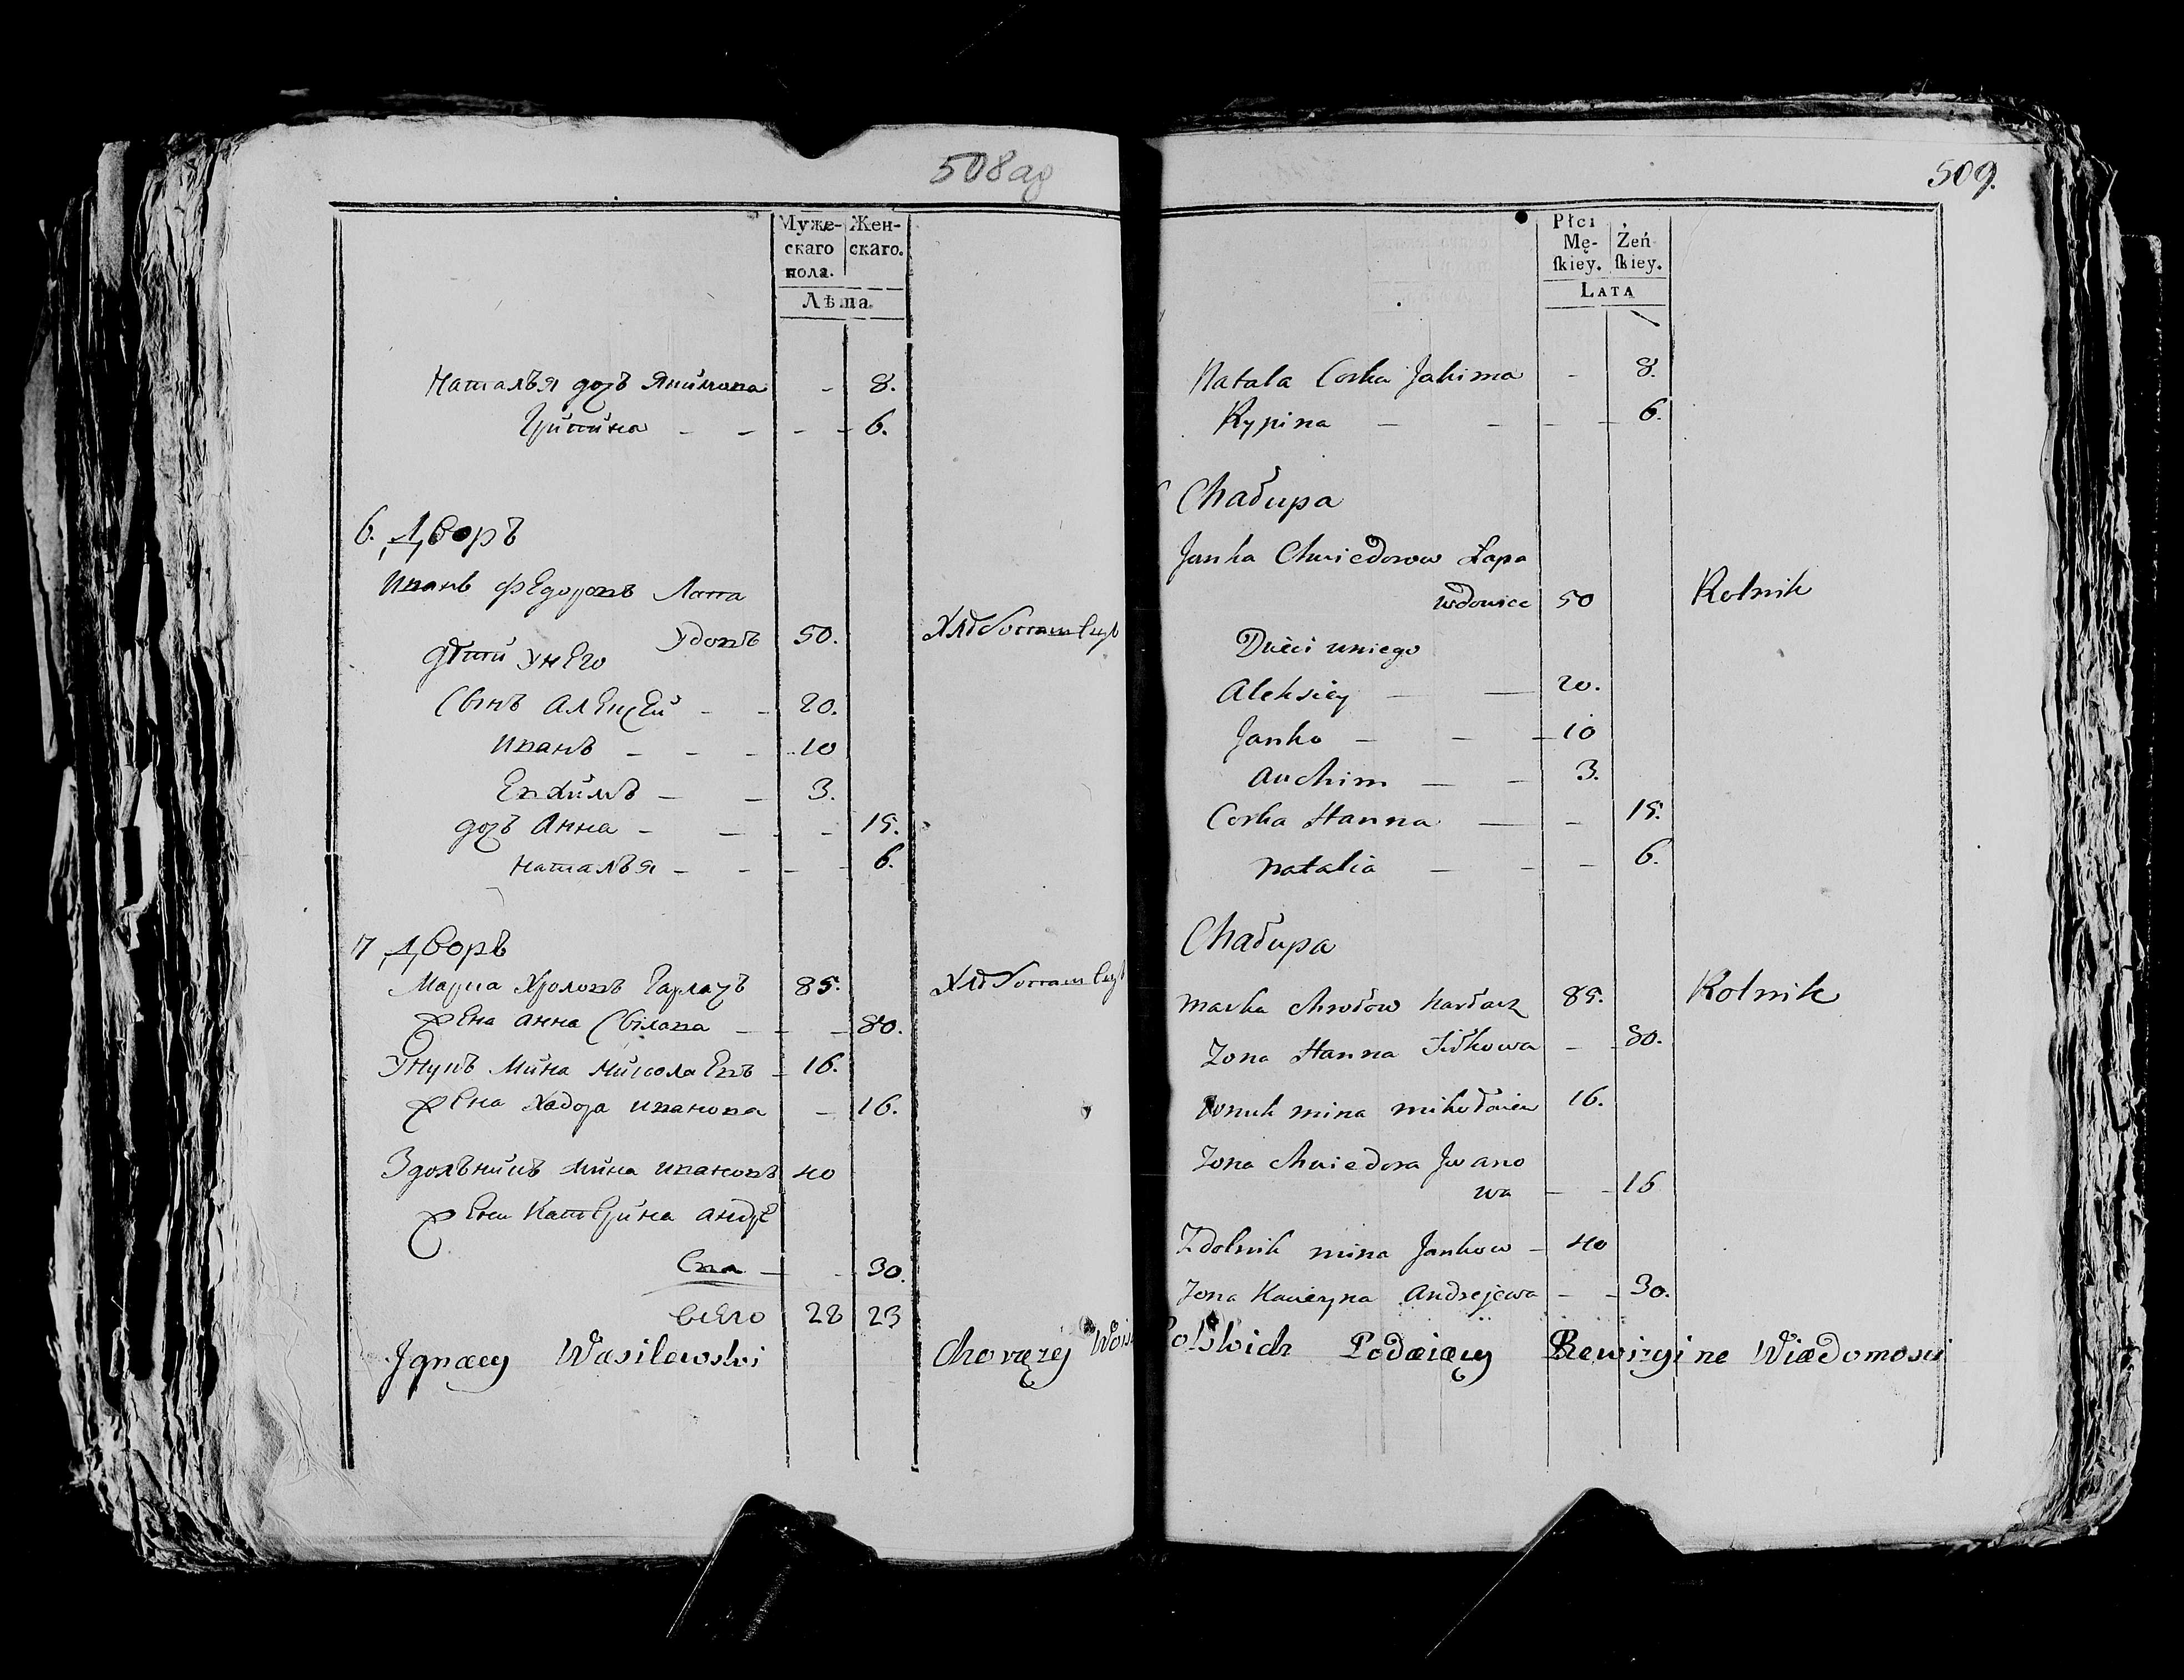 508 ag
Муже-
скаго
пола. Жен-
скаго.
Лѣта
Наталья доч Якимова - 8.
Грипина - - - - 6.
6. Дворъ
Иванъ Федоровъ Лапа
Удовъ 50. Хлѣбопашецъ
Дѣти у него
Сынъ Алексей - - 20.
Иванъ - - - 10
Евхимъ - - 3.
доч Анна - - - 15.
Наталья - - - - 6.
7 Дворъ
Марка Хроловъ Гарлачъ 85. Хлѣбопашецъ
жена Анна Сылкова - - - 80.
Унукъ Мина Миколаевъ - 16.
жена Хадора Иванова - 16.
Здольникъ Мина Ивановъ 40
жена Катерина Андре
ева - - 30.
всего 28 23
Jgnacy Wasilewski Chorązey Woisk
509.
Płci
Mę-
ſkiey. Żeń-
ſkiey.
LATA
Natala Corka Jakima - 8.
Rypina - - - - 6.
Chałupa
Janka Chwiedorow Łapa
wdowiec 50 Rolnik
Dzieci uniego
Aleksiey - - 20.
Janko - - - 10
Auchim - - 3.
Corka Hanna - - 15.
Natalia - - - 6.
Chałupa
Marka Chrołow Harłacz 85. Rolnik
Zona Hanna - - 80.
Wnuk Mina Mikołaiew 16.
Zona Chwiedora Jwano
wa - - 16
Zdolnik Mina Jankow - 40
Zona Kacieryna Andrejewa - - 30.
Polskich Podaiący Rewizyine Wiadomosci